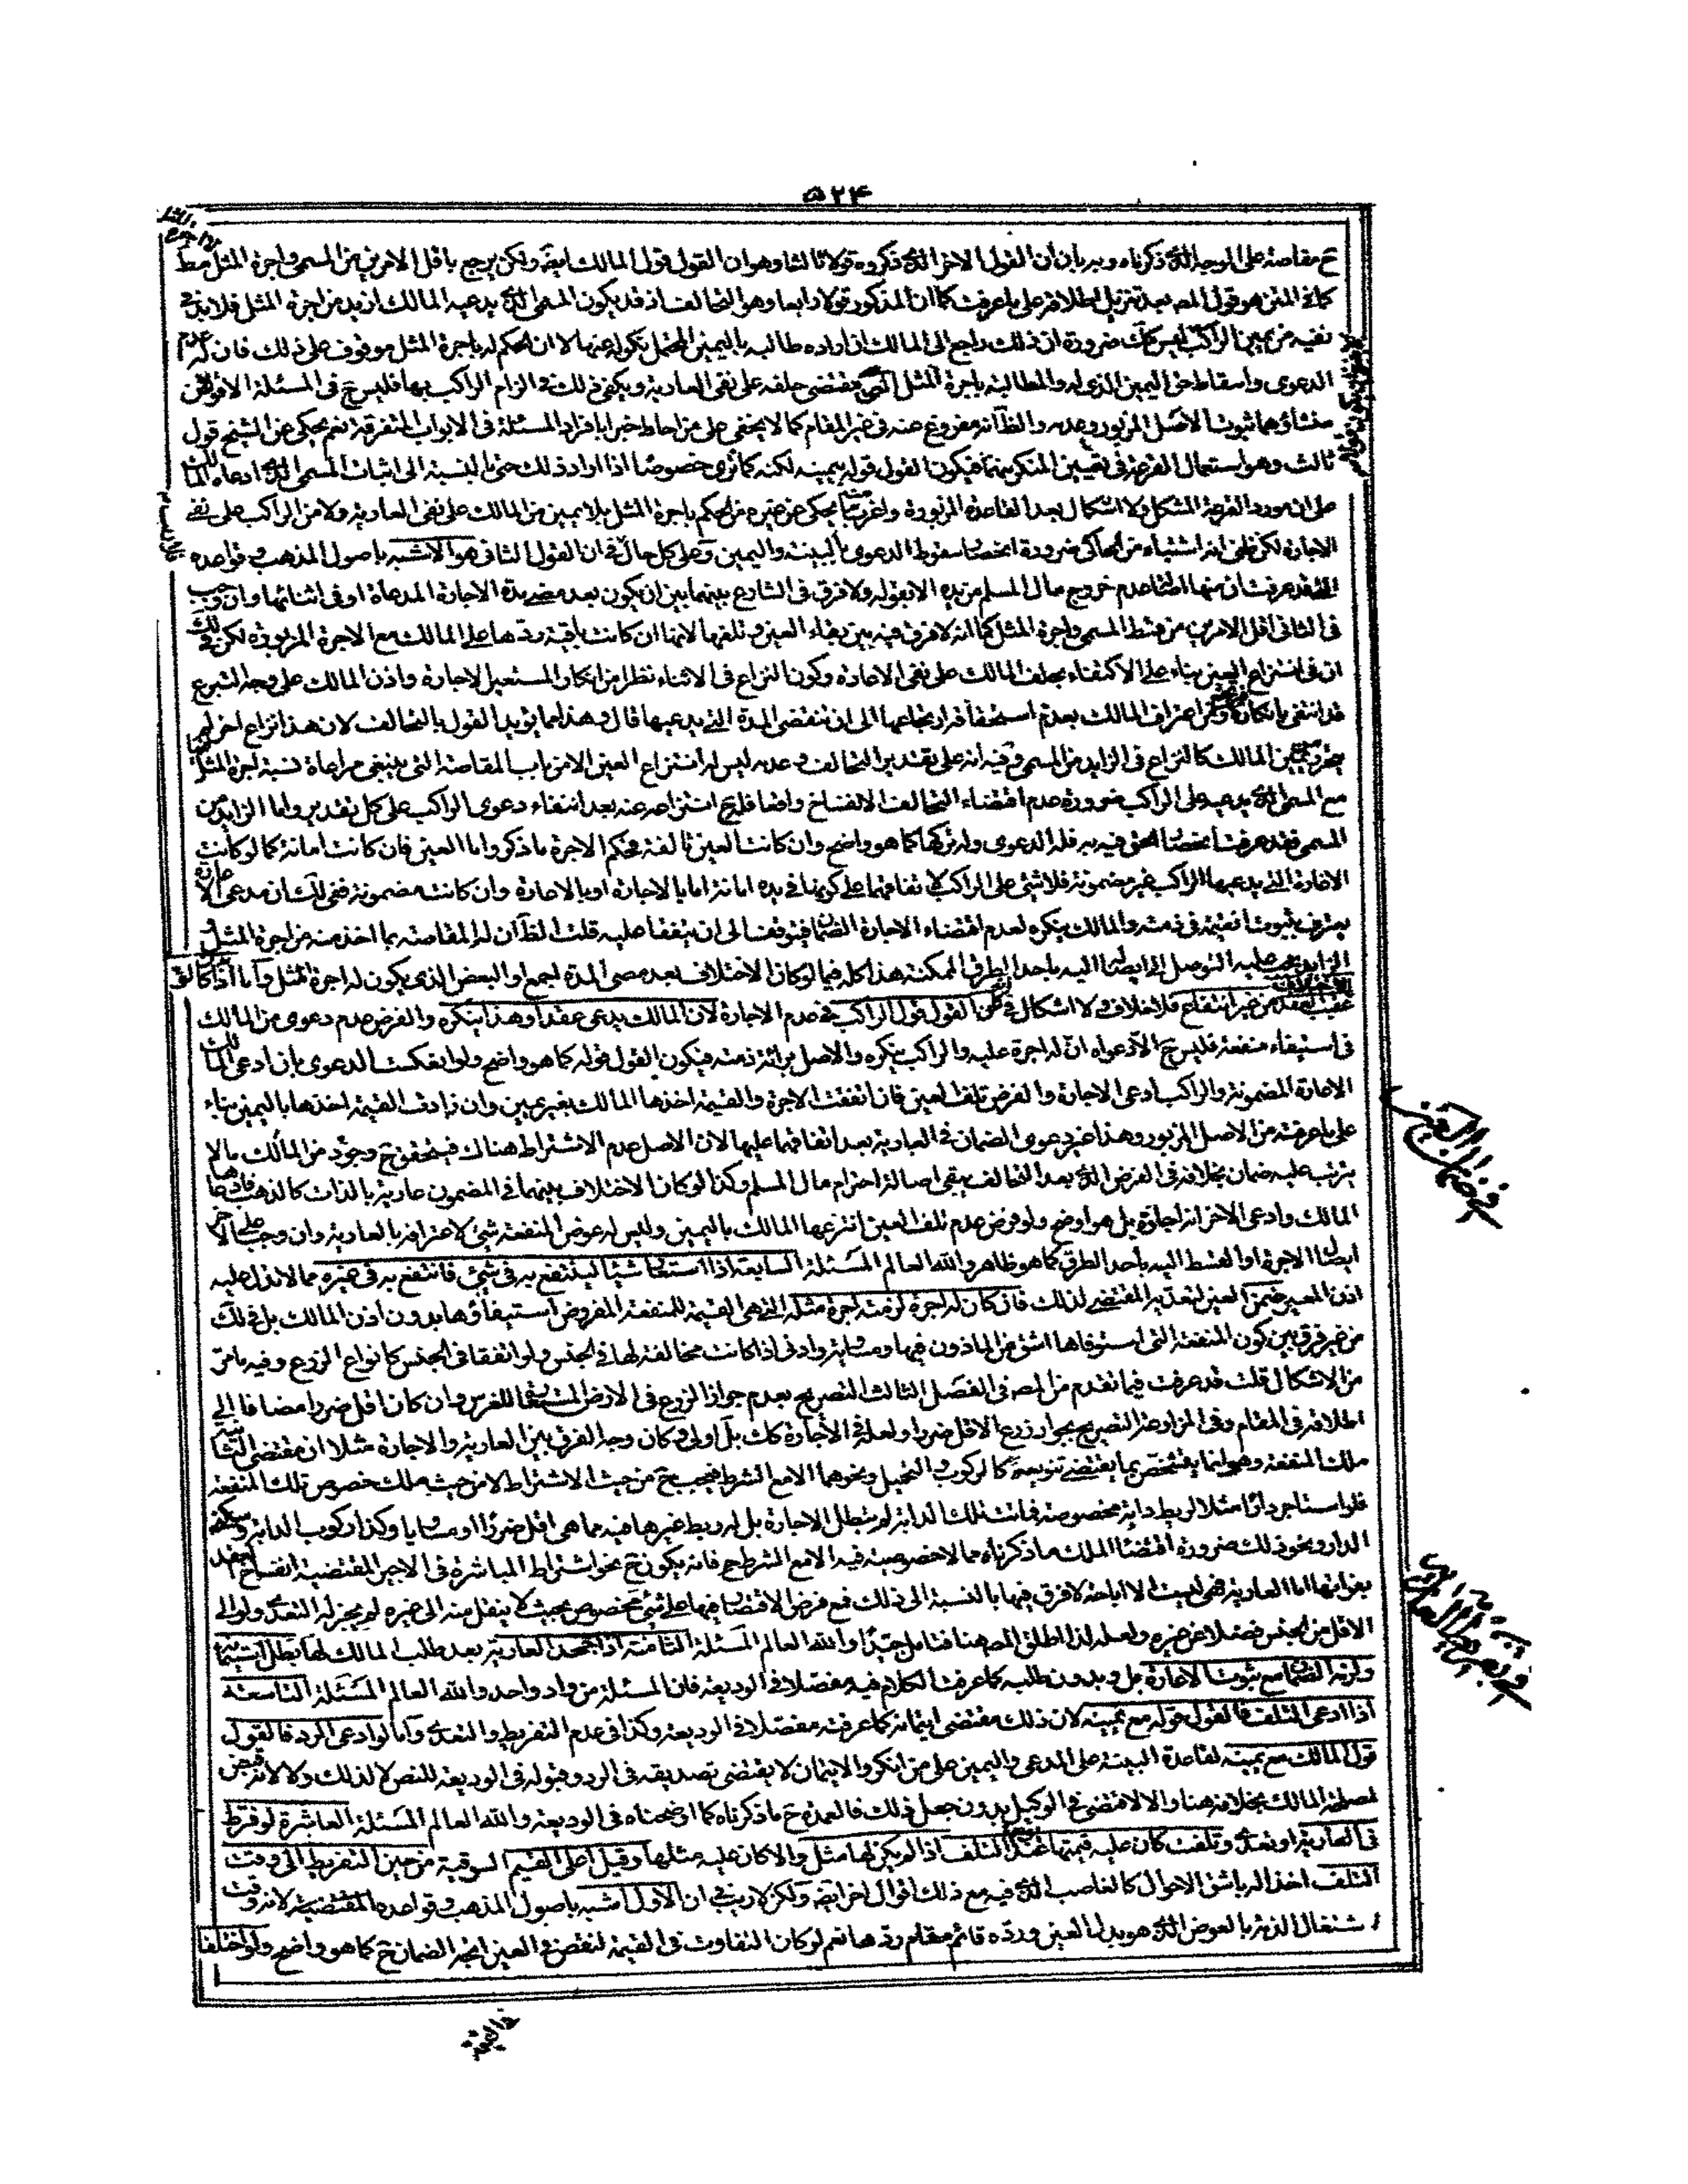 ٥٢٤
مقاصة على الوجه الذى ذكرناه وبه بان ان القول الاخر الذى ذكروه قولا ثالثا وهو ان القول قول المالك ايضا ولكن يرجع باقل الامرين من المسمى واجرة المثل
كما فى المتن هو قول المص بعد تنزيل اطلاقه على ما عرفت كما ان المذكور قولا رابعا وهو التحالف اذ قد يكون المسمى الذى يدعيه المالك ازيد من اجرة المثل فلا بد فى
نفيه من يمين الراكب ليس كك ضرورة ان ذلك راجع الى المالك ان اراده طالبه باليمين المحتمل نكوله عنها لا ان الحكم له باجرة المثل موقوف على ذلك فان له عدم
الدعوى واسقاط حق اليمين الذى له والمطالبة باجرة المثل مقتضى حلفه على نفى العارية ويكفى ذلك فى الزام الراكب بها فليس ح فى المسئلة الا قولان
منشاؤهما ثبوت الاصل المزبور وعدمه والظ انه مفروغ عنه فى غير المقام كما لا يخفى على من احاط خبرا بافراد المسئلة فى الابواب المتفرقة نعم يحكى عن الشيخ قول
ثالث وهو استعمال القرعة فى تعيين المنكر منهما فيكون القول قوله بيمينه لكنه كما ترى خصوصا اذا اراد ذلك حتى بالنسبة الى اثبات المسمى الذى ادعاه المالك
على ان مورد القرعة المشكل ولا اشكال بعد القاعدة المزبورة واغرب مما يحكى عن غيره من الحكم باجرة المثل بلا يمين من المالك على نفى العارية ولا من الراكب على نفى
الاجارة لكن ظنى انه اشتباه من الحاكى ضرورة انحصار سقوط الدعوى بالبينة واليمين وعلى كل حال فان القول الثانى هو الاشبه باصول المذهب وقواعده
التى قد عرفت ان منها اصالة عدم خروج مال المسلم من يده الا بقوله ولا فرق فى التنازع بينهما بين ان يكون بعد مضى مدة الاجارة المدعاة او فى اثنائها وان وجب
فى الثانى اقل الامرين من قسط المسمى واجرة المثل كما انه لا فرق فيه بين بقاء العين وتلفها لانها ان كانت باقية ردها على المالك مع الاجرة المزبورة لكن فى لك
ان فى انتزاع العين بناء على الاكتفاء بحلف المالك على نفى الاعارة وكون النزاع فى الاثناء نظرا من انكار المستعير للاجارة واذن المالك على وجه التبرع
قد انتفى بانكاره ومن اعتراف المالك بعدم استحقاقه ارتجاعها الى ان تنقضى المدة التى يدعيها قال وهذا مما يؤيد القول بالتحالف لان هذا نزاع اخر لم
يحرر يمين المالك كالنزاع فى الزايد من المسمى وفيه انه على تقدير التحالف وعدمه ليس له انتزاع العين الا من باب المقاصة التى ينبغى مراعاة نسبة اجرة المثل
مع المسمى الذى يدعيه على الراكب ضرورة عدم اقتضاء التحالف الانفساخ واقعا فله ح انتزاعه عنه بعد انتفاء دعوى الراكب على كل تقدير واما الزايد من
المسمى فقد عرفت انحصار الحق فيه به فله الدعوى وله تركها كما هو واضح وان كانت العين تالفة فحكم الاجرة ما ذكر واما العين فان كانت امانة كما لو كانت
الاعارة التى يدعيها الراكب غير مضمونة فلا شئ على الراكب لاتفاقهما على كونها فى يده امانة اما بالاجارة او بالاعارة وان كانت مضمونة ففى لك ان مدعى الاعارة
يعترف بثبوت القيمة فى ذمته والمالك ينكره لعدم اقتضاء الاجارة الضمان فيتوقف الى ان يتفقا عليه قلت الظ ان له المقاصة بما اخذ منه من اجرة المثل
الزايد يجب عليه التوصل الى ايصالها اليه باحد الطرق الممكنة هذا كله فيما لو كان الاختلاف بعد مضى المدة اجمع او البعض الذى يكون له اجرة المثل واما اذا كان
عقيب العقد من غير انتفاع فلا خلاف ولا اشكال فى كون القول قول الراكب فى عدم الاجارة لان المالك يدعى عقدا وهذا ينكره والفرض عدم دعوى من المالك
فى استيفاء منفعة فليس ح الا دعواه ان له اجرة عليه والراكب ينكره والاصل برائة ذمته فيكون القول قوله كما هو واضح ولو انعكست الدعوى بان ادعى المالك
الاعارة المضمونة والراكب ادعى الاجارة والفرض تلف العين فان اتفقت الاجرة والقيمة اخذها المالك بغير يمين وان زادت القيمة اخذها باليمين بناء
على ما عرفته من الاصل المزبور وهذا غير دعوى الضمان فى العارية بعد اتفاقهما عليها لان الاصل عدم الاشتراط هناك فيتحقق ح وجود من المالك ما لا
يترتب عليه ضمان بخلافه فى الفرض الذى بعد التحالف يبقى اصالة احترام مال المسلم وكذا لو كان الاختلاف بينهما فى المضمون عارية بالذات كالذهب فادعاها
المالك وادعى الاخر انه اجارة بل هو اوضح ولو فرض عدم تلف العين انتزعها المالك باليمين وليس له عوض المنفعة شئ لاعترافه بالعارية وان وجب على الاخر
ايصال الاجرة او القسط اليه باحد الطرق كما هو ظاهر والله العالم المسئلة السابعة اذا استعار شيئا لينتفع به فى شئ فانتفع به فى غيره مما لا تدل عليه
اذن المعير ضمن العين لتعديه المقتضى لذلك فان كان له اجرة لزمته اجرة مثله التى هى القيمة للمنفعة المفروض استيفاؤها بدون اذن المالك بل فى لك
من غير فرق بين كون المنفعة التى استوفاها اشق من الماذون فيها ومساوية وادنى اذا كانت مخالفة لها فى الجنس ولو اتفقا فى الجنس كانواع الزرع وفيه ما مر
من الاشكال قلت قد عرفت فيما تقدم من المص فى الفصل الثالث التصريح بعدم جواز الزرع فى الارض المستعارة للغرس وان كان اقل ضررا مضافا الى
اطلاقه فى المقام وفى المزارعة التصريح بجواز زرع الاقل ضررا ولعله فى الاجارة كك بل اولى وكان وجه الفرق بين العارية والاجارة مثلا ان مقتضى الثانية
ملك المنفعة وهو انما يتشخص بما يقتضى تنويعه كالركوب والتحميل ونحوهما الا مع الشرط فيجب ح من حيث الاشتراط لا من حيث ملك خصوص تلك المنفعة
فلو استاجر دارا مثلا لربط دابة مخصوصة فماتت تلك الدابة لم تبطل الاجارة بل له ربط غيرها فيه مما هى اقل ضررا او مساويا وكذا ركوب الدابة وسكنى
الدار ونحو ذلك ضرورة اقتضاء الملك ما ذكرناه مما لا خصوصية فيه الا مع الشرط ح فانه يكون ح نحو اشتراط المباشرة فى الاجير المقتضية انفساخ العقد
بفواتها اما العارية فهى ليست الا اباحة لا فرق فيها بالنسبة الى ذلك فمع فرض الاقتصار فيها على شئ مخصوص بحيث لا ينتقل منه الى غيره لم يجز له التعدى ولو الى
الاقل من الجنس فضلا عن غيره ولعله لذا اطلق المص هنا فتامل جيدا والله العالم المسئلة الثامنة اذا جحد العارية بعد طلب المالك لها بطل استيمانه
ولزمه الضمان مع ثبوت الاعارة بل وبدون طلبه كما عرفت الكلام فيه مفصلا فى الوديعة فان المسئلة من واد واحد والله العالم المسئلة التاسعة
اذا ادعى التلف فالقول قوله مع يمينه لان ذلك مقتضى ايتمانه كما عرفته مفصلا فى الوديعة وكذا فى عدم التفريط والتعدى واما لو ادعى الرد فالقول
قول المالك مع يمينه لقاعدة البينة على المدعى واليمين على من انكر والايتمان لا يقتضى تصديقه فى الرد وقبوله فى الوديعة للنص لا لذلك ولا لانه قبض
لمصلحة المالك بخلافه هنا والا لاقتضى فى الوكيل بدون جعل ذلك فالعمدة ح ما ذكرناه كما اوضحناه فى الوديعة والله العالم المسئلة العاشرة لو فرط
فى العارية او تعدى وتلفت كان عليه قيمتها عند التلف اذا لم يكن لها مثل والا كان عليه مثلها وقيل اعلى القيم السوقية من حين التفريط الى وقت
التلف اخذا له باشق الاحوال كالغاصب الذى فيه مع ذلك اقوال اخر ايضا ولكن لا ريب فى ان الاول اشبه باصول المذهب وقواعده المقتضية لانه وقت
اشتغال الذمة بالعوض الذى هو بدل العين ورده قائم مقام ردها نعم لو كان التفاوت فى القيمة لنقص فى العين اتجه الضمان ح كما هو واضح ولو اختلفا